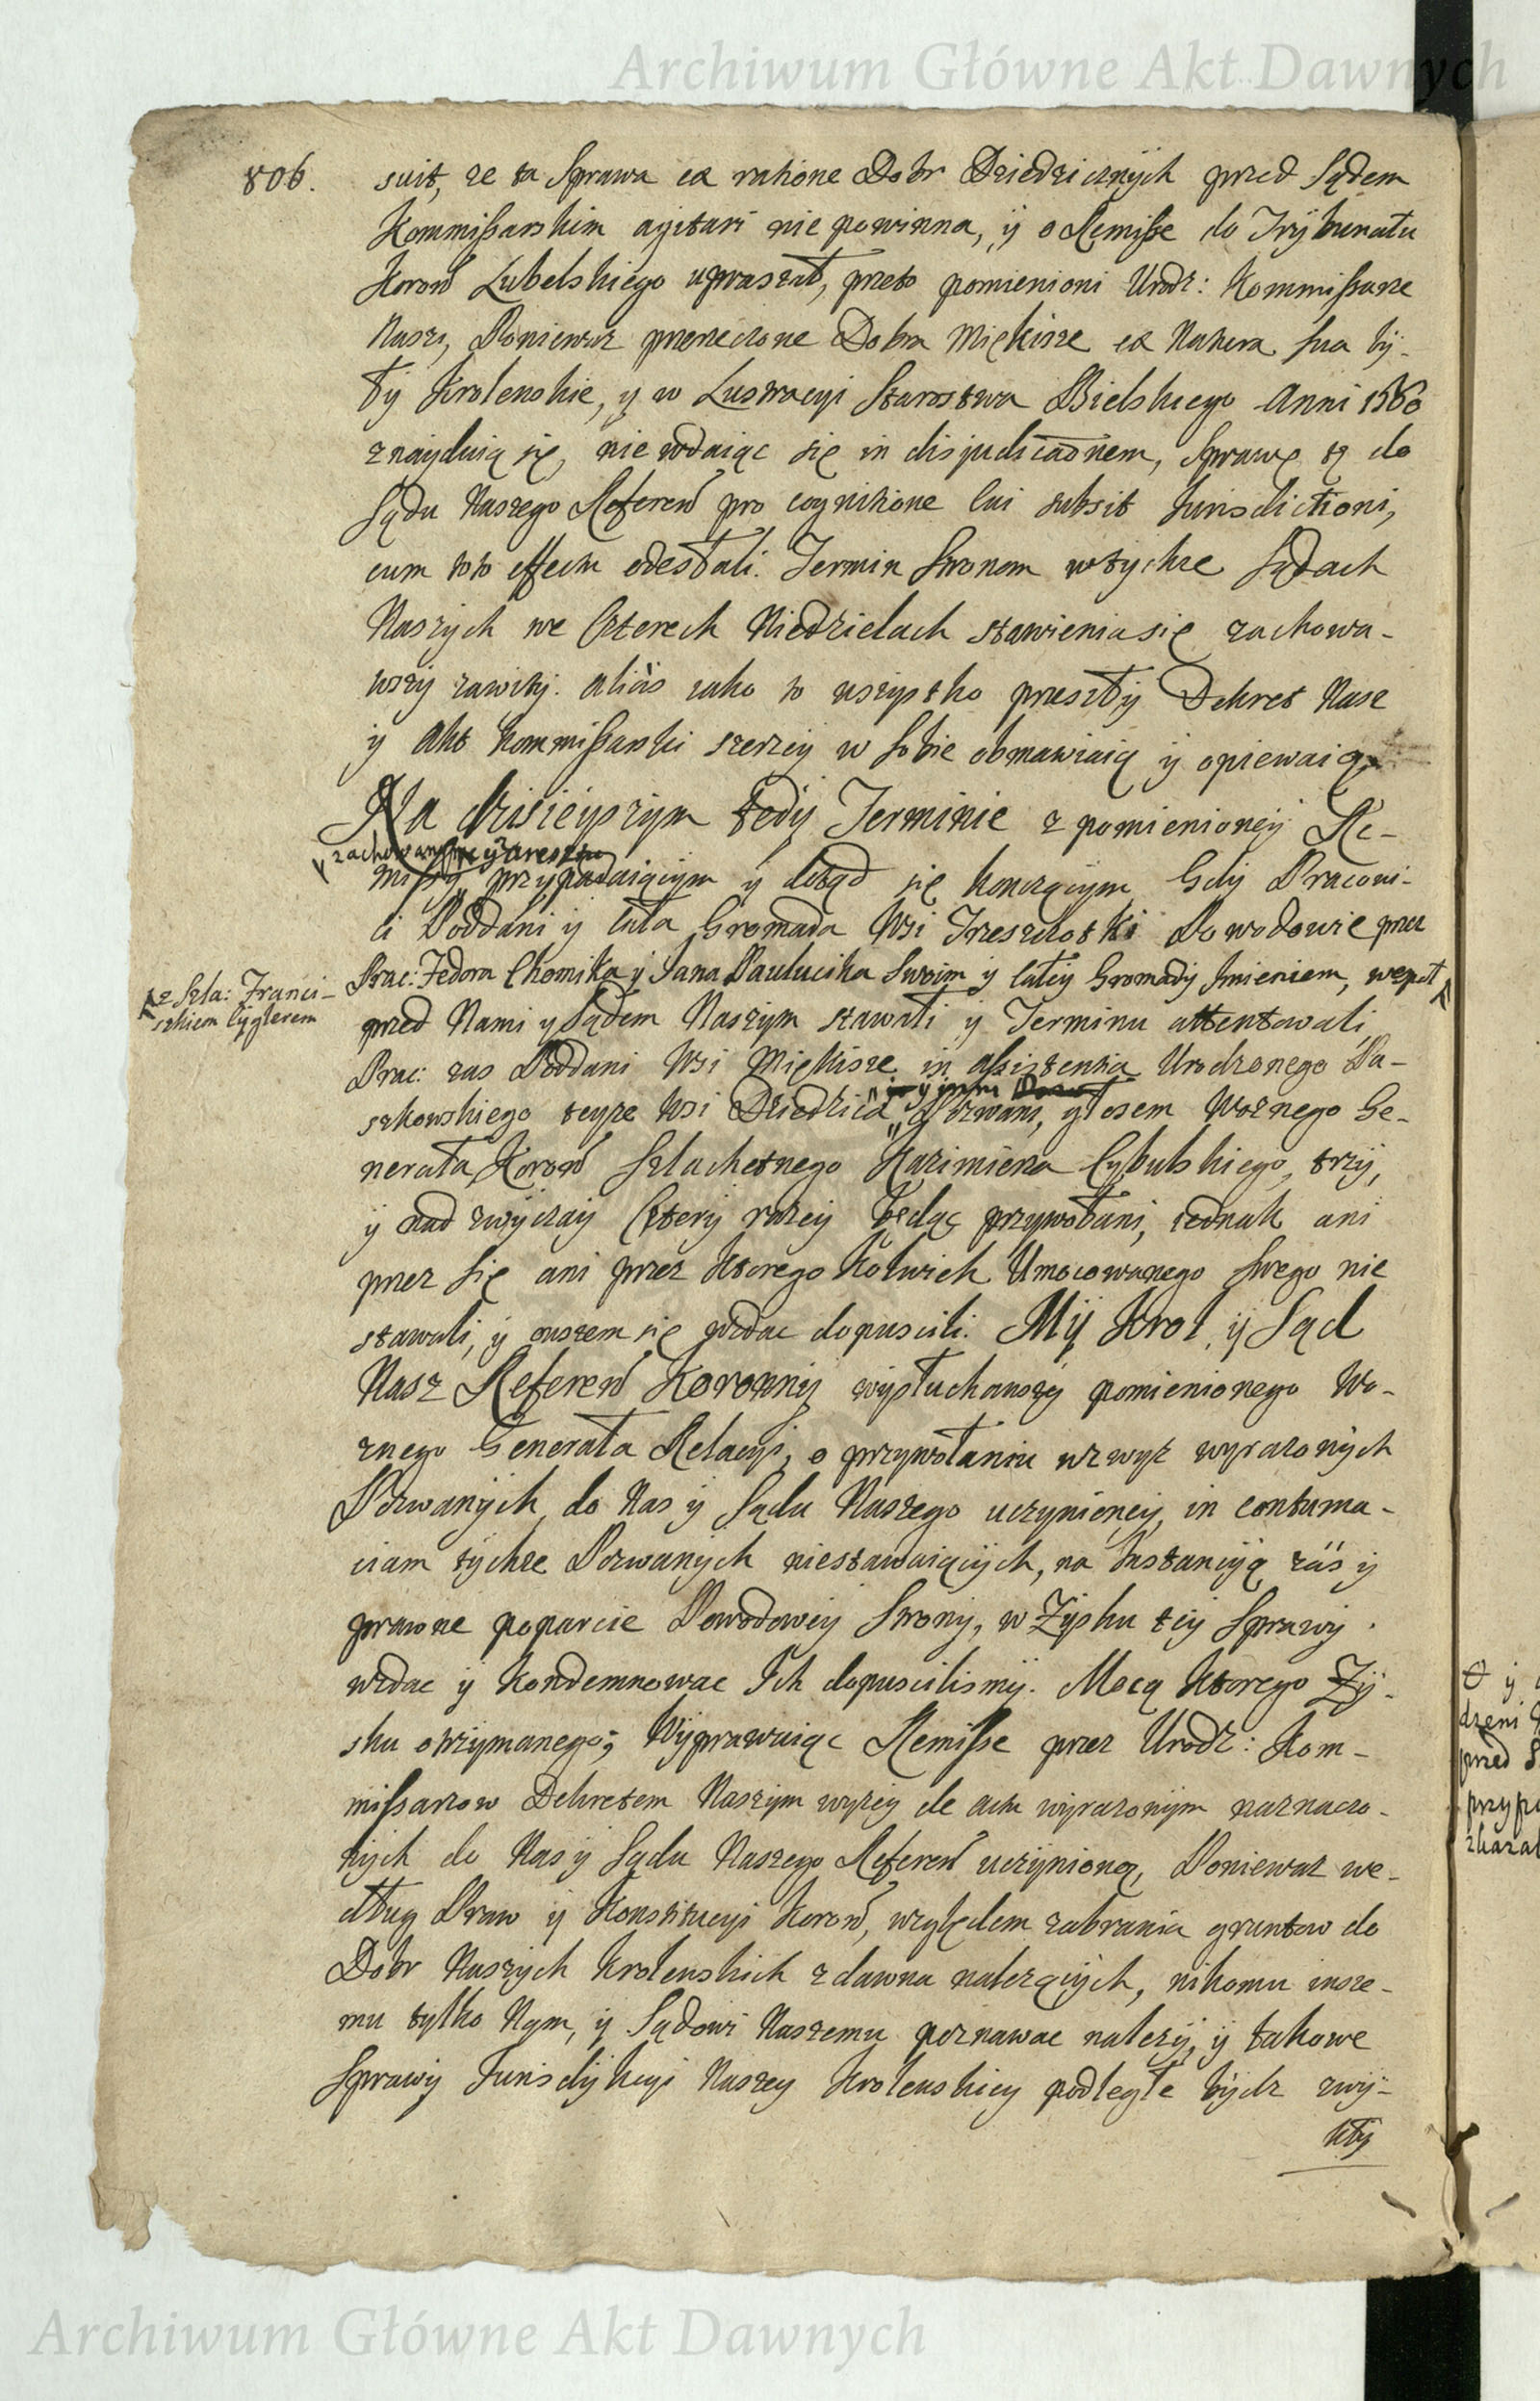 Archiwum Główne Akt Dawnych
806.
suit, ze ta Sprawa ex ratione Dobr Dziedzicznych przed Sądem
Kommißarskim agitari nie powinna, ÿ o Remiße do Trÿbunału
Koron̄ Lubelskiego upraszał, przeto pomienioni Urodz: Kommißarze
Nasi, Ponieważ przerzeczone Dobra Miękisze ex Natura sua bÿ-
łÿ Krolewskie, ÿ w Lustracyi Starostwa Bielskiego Anni 1560
znayduią się, nie wdaiąc się in disjudica͠onem, Sprawę tą do
Sądu Naszego Referen̄ pro cognitione Cui subsit Jurisdictioni,
cum toto effectu odesłali. Termin Stronom w tychze Sądach
Naszych we Czterech Niedzielach stawienia się zachowa-
wszy zawity. aliàs iako to wszystko przeszłÿ Dekret Nasz
ÿ Akt Kommißarski szerzey w Sobie obmawiaią ÿ opiewaią.
Na dzisieyszym tedÿ Terminie z pomienioneÿ Re-
zachowanym ÿ aresztu
mißy przypadaiącym y dotąd się konczącym Gdÿ Pracowi-
ci Poddani y cała Gromada Wsi Trzeszczotki Powodowie przez
Prac: Fedora Chomika y Jana Paulucika Swoim y całey Gromady Jmieniem, wespoł
z Szla: Franci-
szkiem Cyglerem
przed Nami y Sądem Naszym stawali y Terminu attentowali,
Prac: zas Poddani Wsi Miękisze in aßistentia Urodzonego Pa-
szkowskiego teyze Wsi Dziedzica y inni Pozwani, głosem Woznego Ge-
nerała Koron̄ Szlachetnego Kazimierza Cybulskiego, trzy,
ÿ nad zwyczay Cztery razy będąc przywołani, iednak ani
przez się ani przez ktorego kolwiek Umocowanego swego nie
stawali, y owszem się wzdac dopuscili. Mÿ Krol, ÿ Sąd
Nasz Referen̄ Koronny wysłuchawszy pomienionego Wo-
znego Generała Relacyi, o przywołaniu wzwyż wyrazonych
Pozwanych do Nas y Sądu Naszego uczynioney, in contuma-
ciam tychze Pozwanych niestawaiących, na Instancyą zás y
prawne poparcie Powodowey Strony, w Zysku tey Sprawy
wzdac ÿ kondemnowac Ich dopuscilismÿ. Mocą ktorego Zÿ-
sku otrzymanego; Wyprawuiąc Remiße przez Urodz: Kom-
mißarzow Dekretem Naszym wyzey de actu wyrazonym naznaczo-
nych do Nas y Sądu Naszego Referen̄ uczynioną, Ponieważ we-
dług Praw ÿ Konstytucyi Koron̄, względem zabrania gruntow do
Dobr Naszych Krolewskich z dawna nalezących, nikomu insze-
mu tylko Nam, ÿ Sądowi Naszemu poznawac nalezÿ, ÿ takowe
Sprawÿ Jurisdÿkcyi Naszey Krolewskiey podległe bydz zwÿ-
kłÿ
Archiwum Główne Akt Dawnych